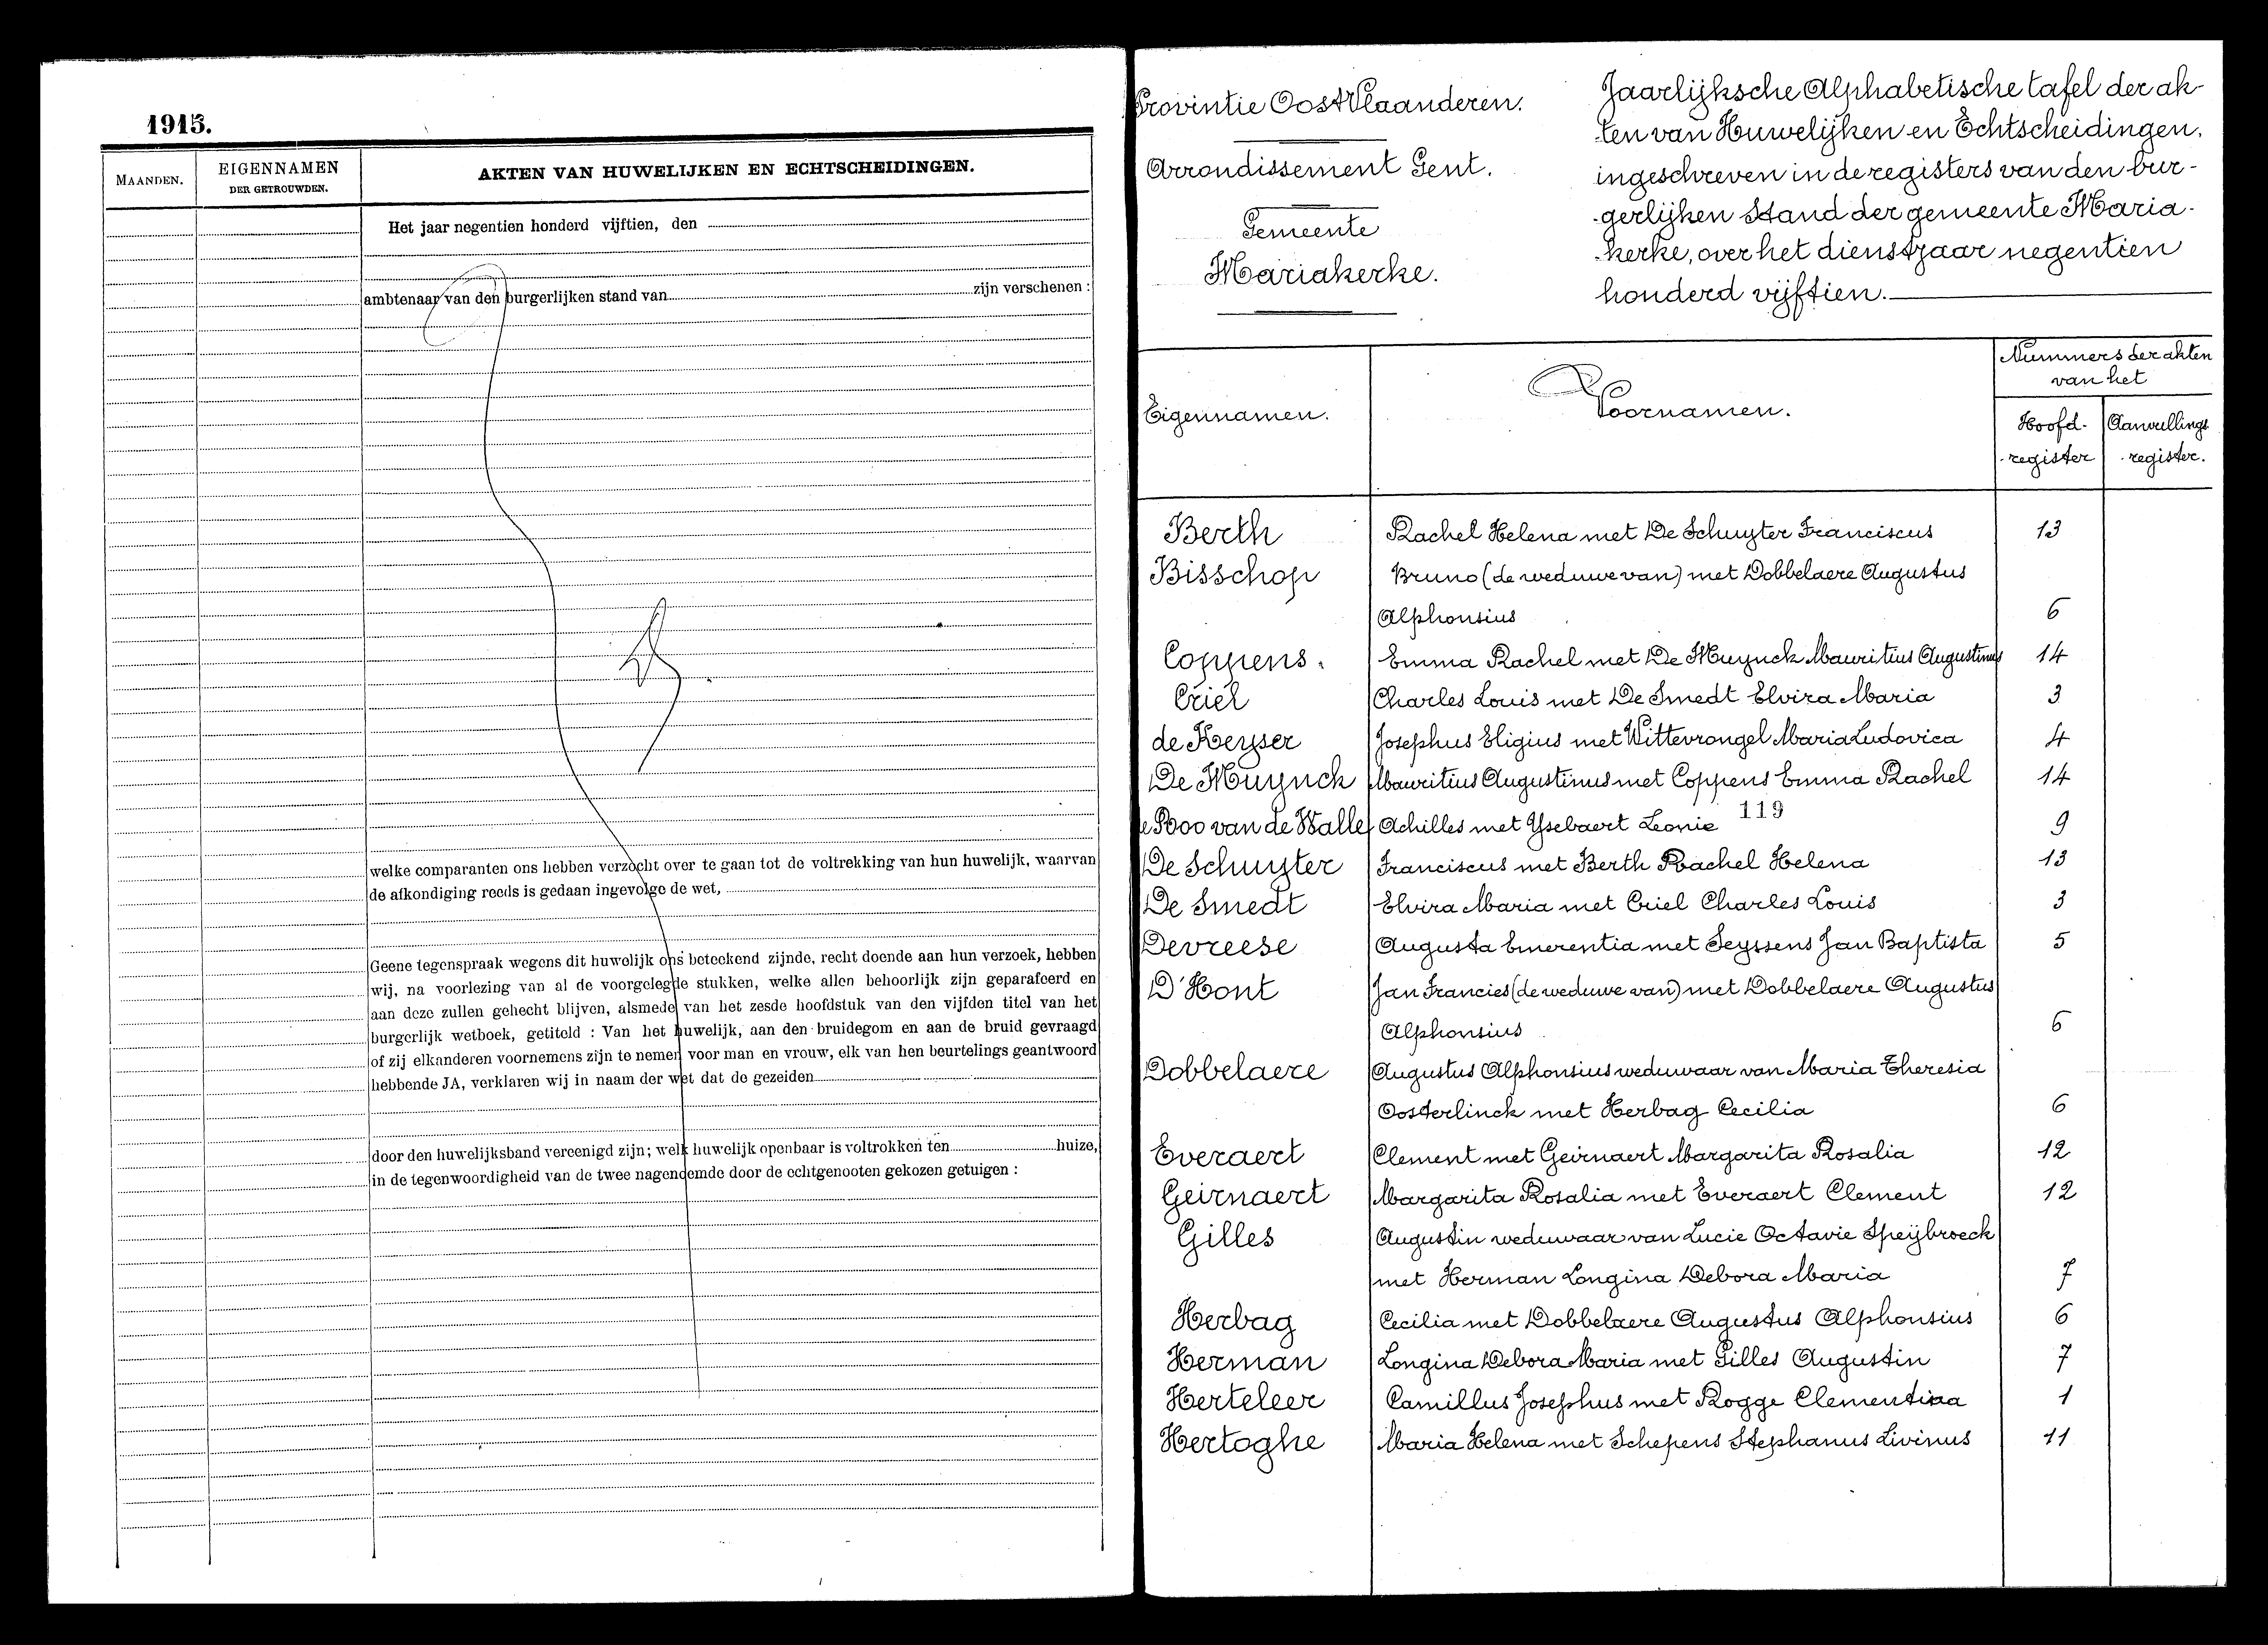 1915.
MAANDEN.
EIGENNAMEN
DER GETROUWDEN.
AKTEN VAN HUWELIJKEN EN ECHTSCHEIDINGEN.
Het jaar negentien honderd vijftien, den
ambtenaar van den burgerlijken stand van zijn verschenen :
welke comparanten ons hebben verzocht over te gaan tot de voltrekking van hun huwelijk, waarvan
de afkondiging reeds is gedaan ingevolge de wet,
Geene tegenspraak wegens dit huwelijk ons beteekend zijnde, recht doende aan hun verzoek, hebben
wij, na voorlezing van al de voorgelegde stukken, welke allen behoorlijk zijn geparafeerd en
aan deze zullen gehecht blijven, alsmede van het zesde hoofdstuk van den vijfden titel van het
burgerlijk wetboek, getiteld : Van het huwelijk, aan den bruidegom en aan de bruid gevraagd
of zij elkanderen voornemens zijn te nemen voor man en vrouw, elk van hen beurtelings geantwoord
hebbende JA, verklaren wij in naam der wet dat de gezeiden
door den huwelijksband vereenigd zijn; welk huwelijk openbaar is voltrokken ten huize,
in de tegenwoordigheid van de twee nagenoemde door de echtgenooten gekozen getuigen :
Provintie OostVlaanderen.
Arrondissement Gent.
Gemeente
Mariakerke.
Jaarlijksche Alphabetische tafel der ak-
-ten van Huwelijken en Echtscheidingen,
ingeschreven in de registers van den bur-
-gerlijken Stand der gemeente Maria-
-kerke, over het dienstjaar negentien
honderd vijftien.
Eigennamen.
Voornamen.
Nummers der akten
van het
Hoofd-
-register
Aanvullings
-register.
Berth Rachel Helena met De Schuyter Franciscus 13
Bisschop Bruno (de weduwe van) met Dobbelaere Augustus
Alphonsius 6
Coppens. Emma Rachel met De Muynck Mauritius Augustinus 14
Criel Charles Louis met De Smedt Elvira Maria 3
de Keyser Josephus Eligius met Wittevrongel Maria Ludovica 4
De Muynck Mauritius Augustinus met Coppens Emma Rachel 14
e Roo van de Walle Achilles met Ysebaert Leonie 119 9
De Schuyter Franciscus met Berth Rachel Helena 13
De Smedt Elvira Maria met Criel Charles Louis 3
Devreese Augusta Emerentia met Seyssens Jan Baptista 5
D'Hont Jan Francies (de weduwe van) met Dobbelaere Augustus
Alphonsius 6
Dobbelaere Augustus Alphonsius weduwaar van Maria Theresia
Oosterlinck met Herbag Cecilia 6
Everaert Clement met Geirnaert Margarita Rosalia 12
Geirnaert Margarita Rosalia met Everaert Clement 12
Gilles Augustin weduwaar van Lucie Octavie Speijbroeck
met Herman Longina Debora Maria 7
Herbag Cecilia met Dobbelaere Augustus Alphonsius 6
Herman Longina Debora Maria met Gilles Augustin 7
Herteleer Camillus Josephus met Rogge Clementina 1
Hertoghe Maria Helena met Schepens Stephanus Livinus 11